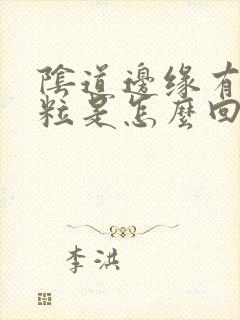 陰道邊緣有
粒是怎麼回
李洪